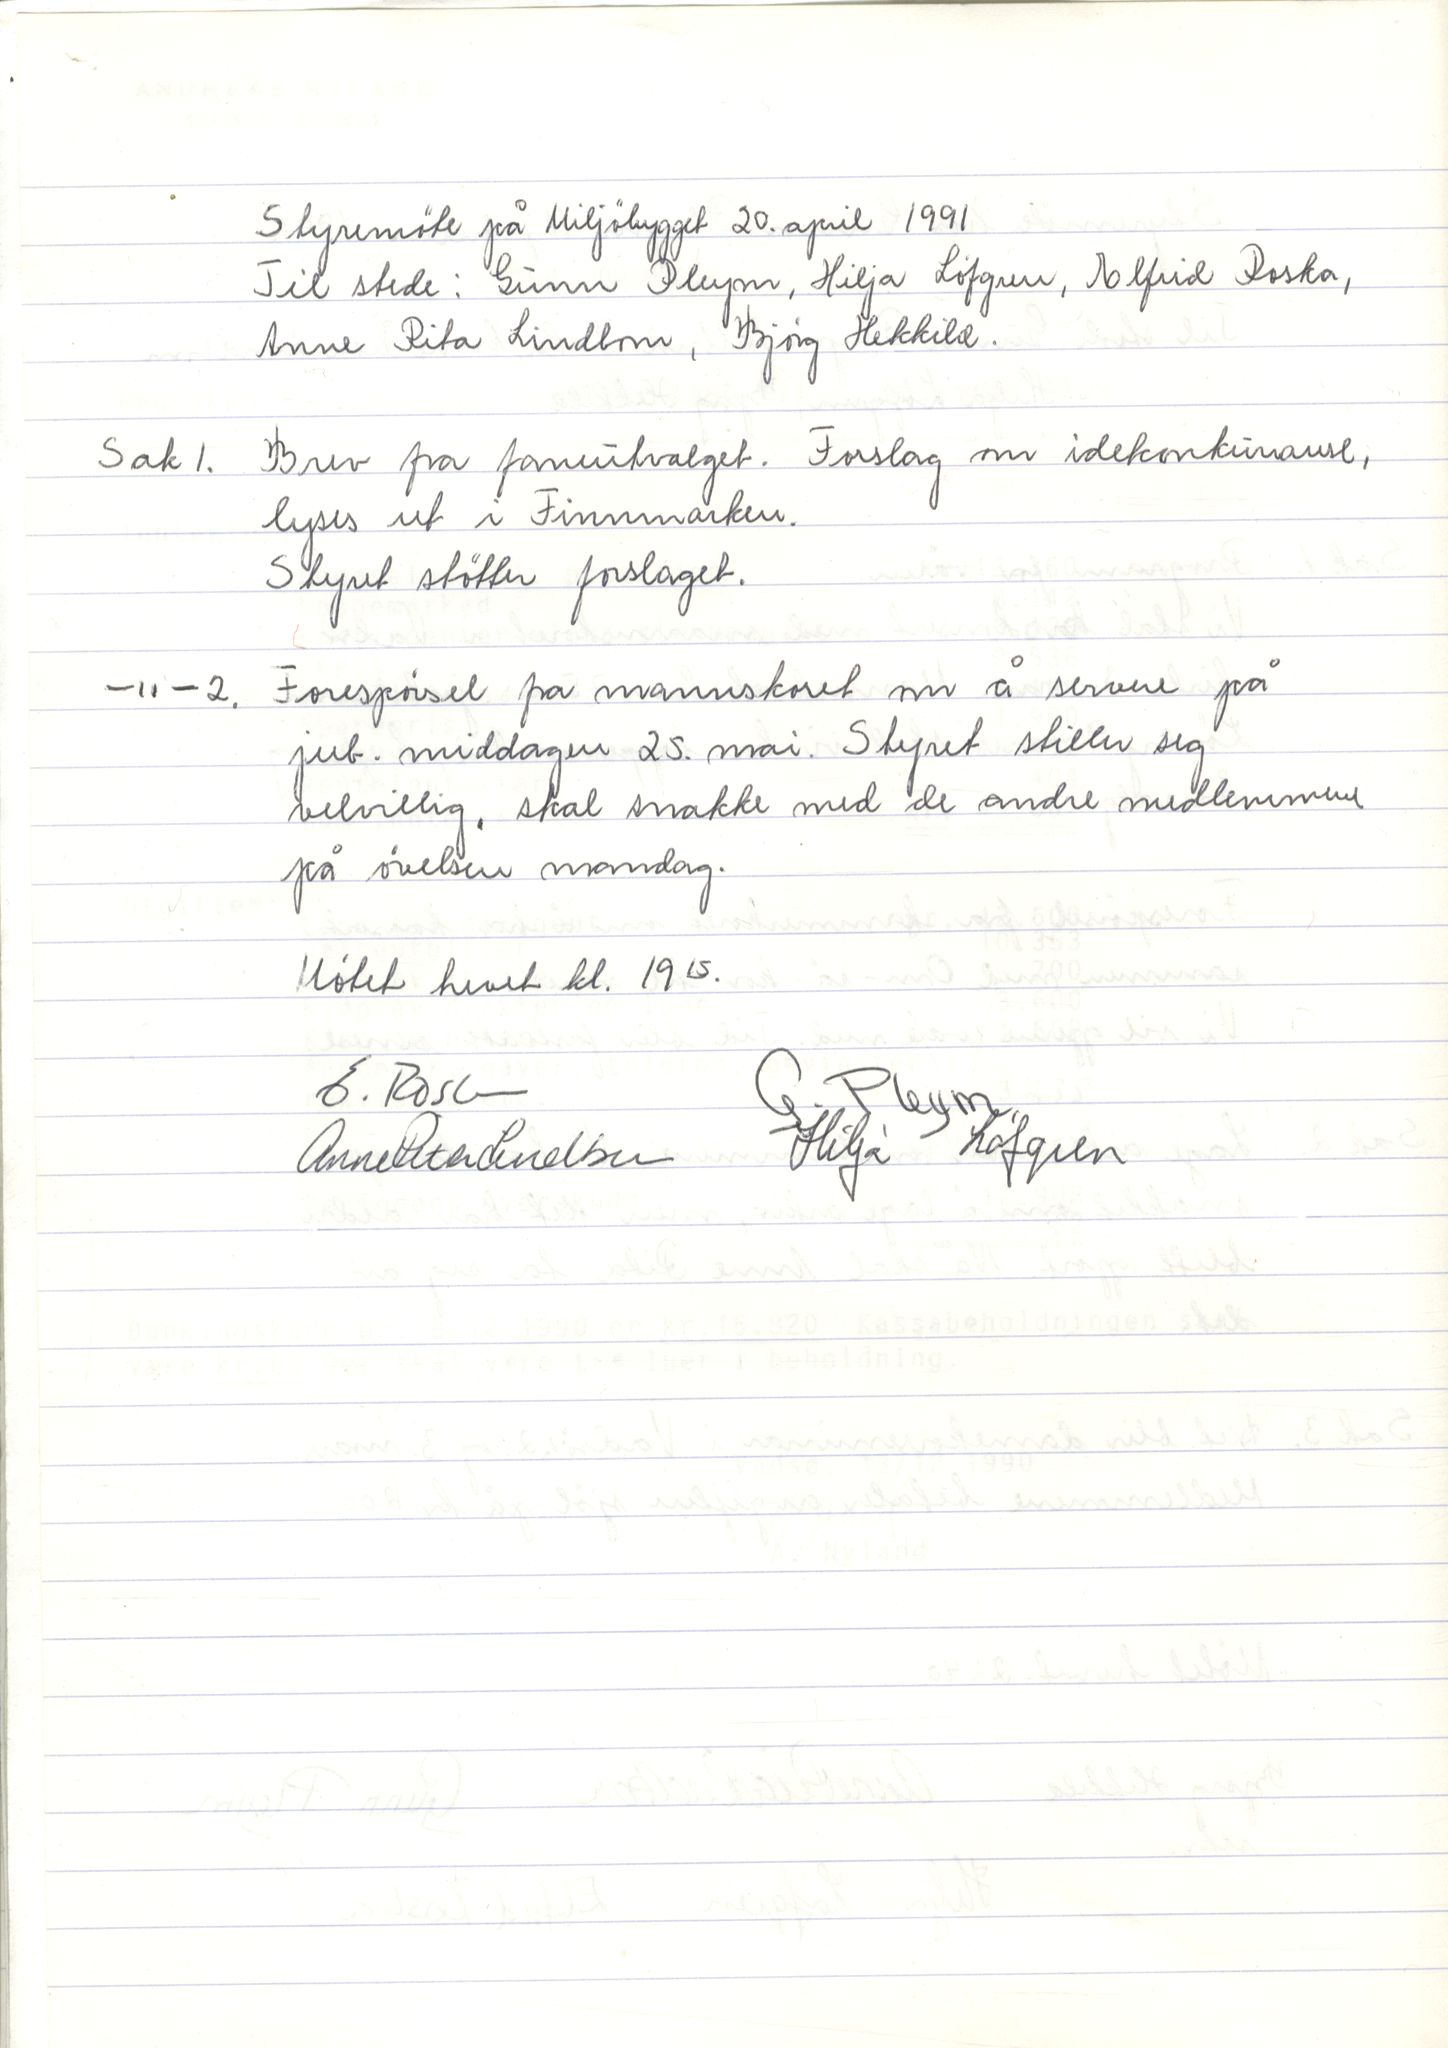 Styremöte på Miljöbygget 20. april 1991
Til stede: Gunn Pleym, Hilja Löfgren, Elfrid Roska,
Anne Rita Lindbom, Bjørg Hekkilæ.
Sak 1. Brev fra faneutvalget. Forslag om idekonkurranse,
lyses ut i Finnmarken.
Styret stötter forslaget.
-"- 2. Forespörsel fra mannskoret om å servere på
jub. middagen 25. mai. Styret stiller seg
velvillig, skal snakke med de andre medlemmene
på övelsen mandag.
Mötet hevet kl. 19 15.
E. Roska G. Pleym
Anne Rita Lindbom Hilja Löfgren